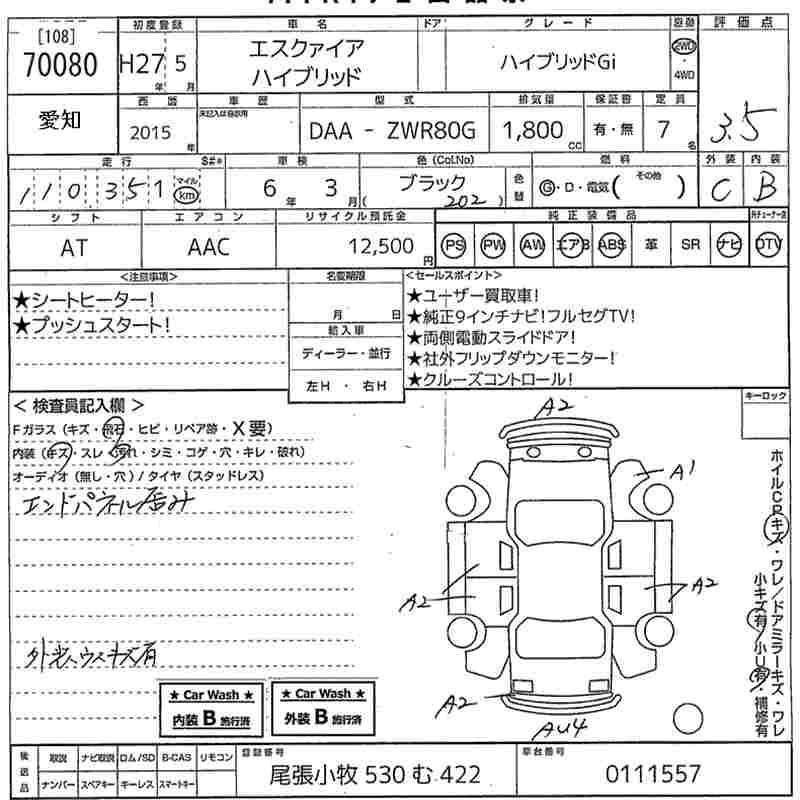 [108]
70080
初度登録
H27年 5月
車名
エスクァイア
ハイブリッド
ドア
グレード
ハイブリッドGi
駆動
2WD
・
4WD
評価点
3.5
愛知
西暦
2015年
車歴
未記入は自家用
型式
DAA - ZWR80G
排気量
1,800cc
保証書
有・無
定員
7名
走行
110,351
S#*
マイル
km
車検
6年 3月
色(Col.No)
ブラック
( 202 )
色替
燃料
G・D・電気( その他 )
外装
C
内装
B
シフト
AT
エアコン
AAC
リサイクル預託金
12,500円
純正装備品
PS PW AW エアB ABS 革 SR ナビ
DTV
<注意事項>
★シートヒーター!
★プッシュスタート!
名変期限
月 日
輸入車
ディーラー・並行
左H ・ 右H
<セールスポイント>
★ユーザー買取車!
★純正9インチナビ!フルセグTV!
★両側電動スライドドア!
★社外フリップダウンモニター!
★クルーズコントロール!
キーロック
< 検査員記入欄 >
Fガラス (キズ・飛石・ヒビ・リペア跡・X要)
内装 (キズ・スレ・汚れ・シミ・コゲ・穴・キレ・破れ)
オーディオ (無し・穴) / タイヤ (スタッドレス)
エンドパネル凹み
A2
A1
A2
A2
A2
AU4
ホイルCPキズ・ワレ/ドアミラーキズ・ワレ
小キズ有/小U有・補修有
★ Car Wash ★
内装 B 施行済
★ Car Wash ★
外装 B 施行済
後送品
取説 ナビ取説 ロム/SD B-CAS リモコン
ナンバー スペアキー キーレス スマートキー
登録番号
尾張小牧 530 む 422
車台番号
0111557